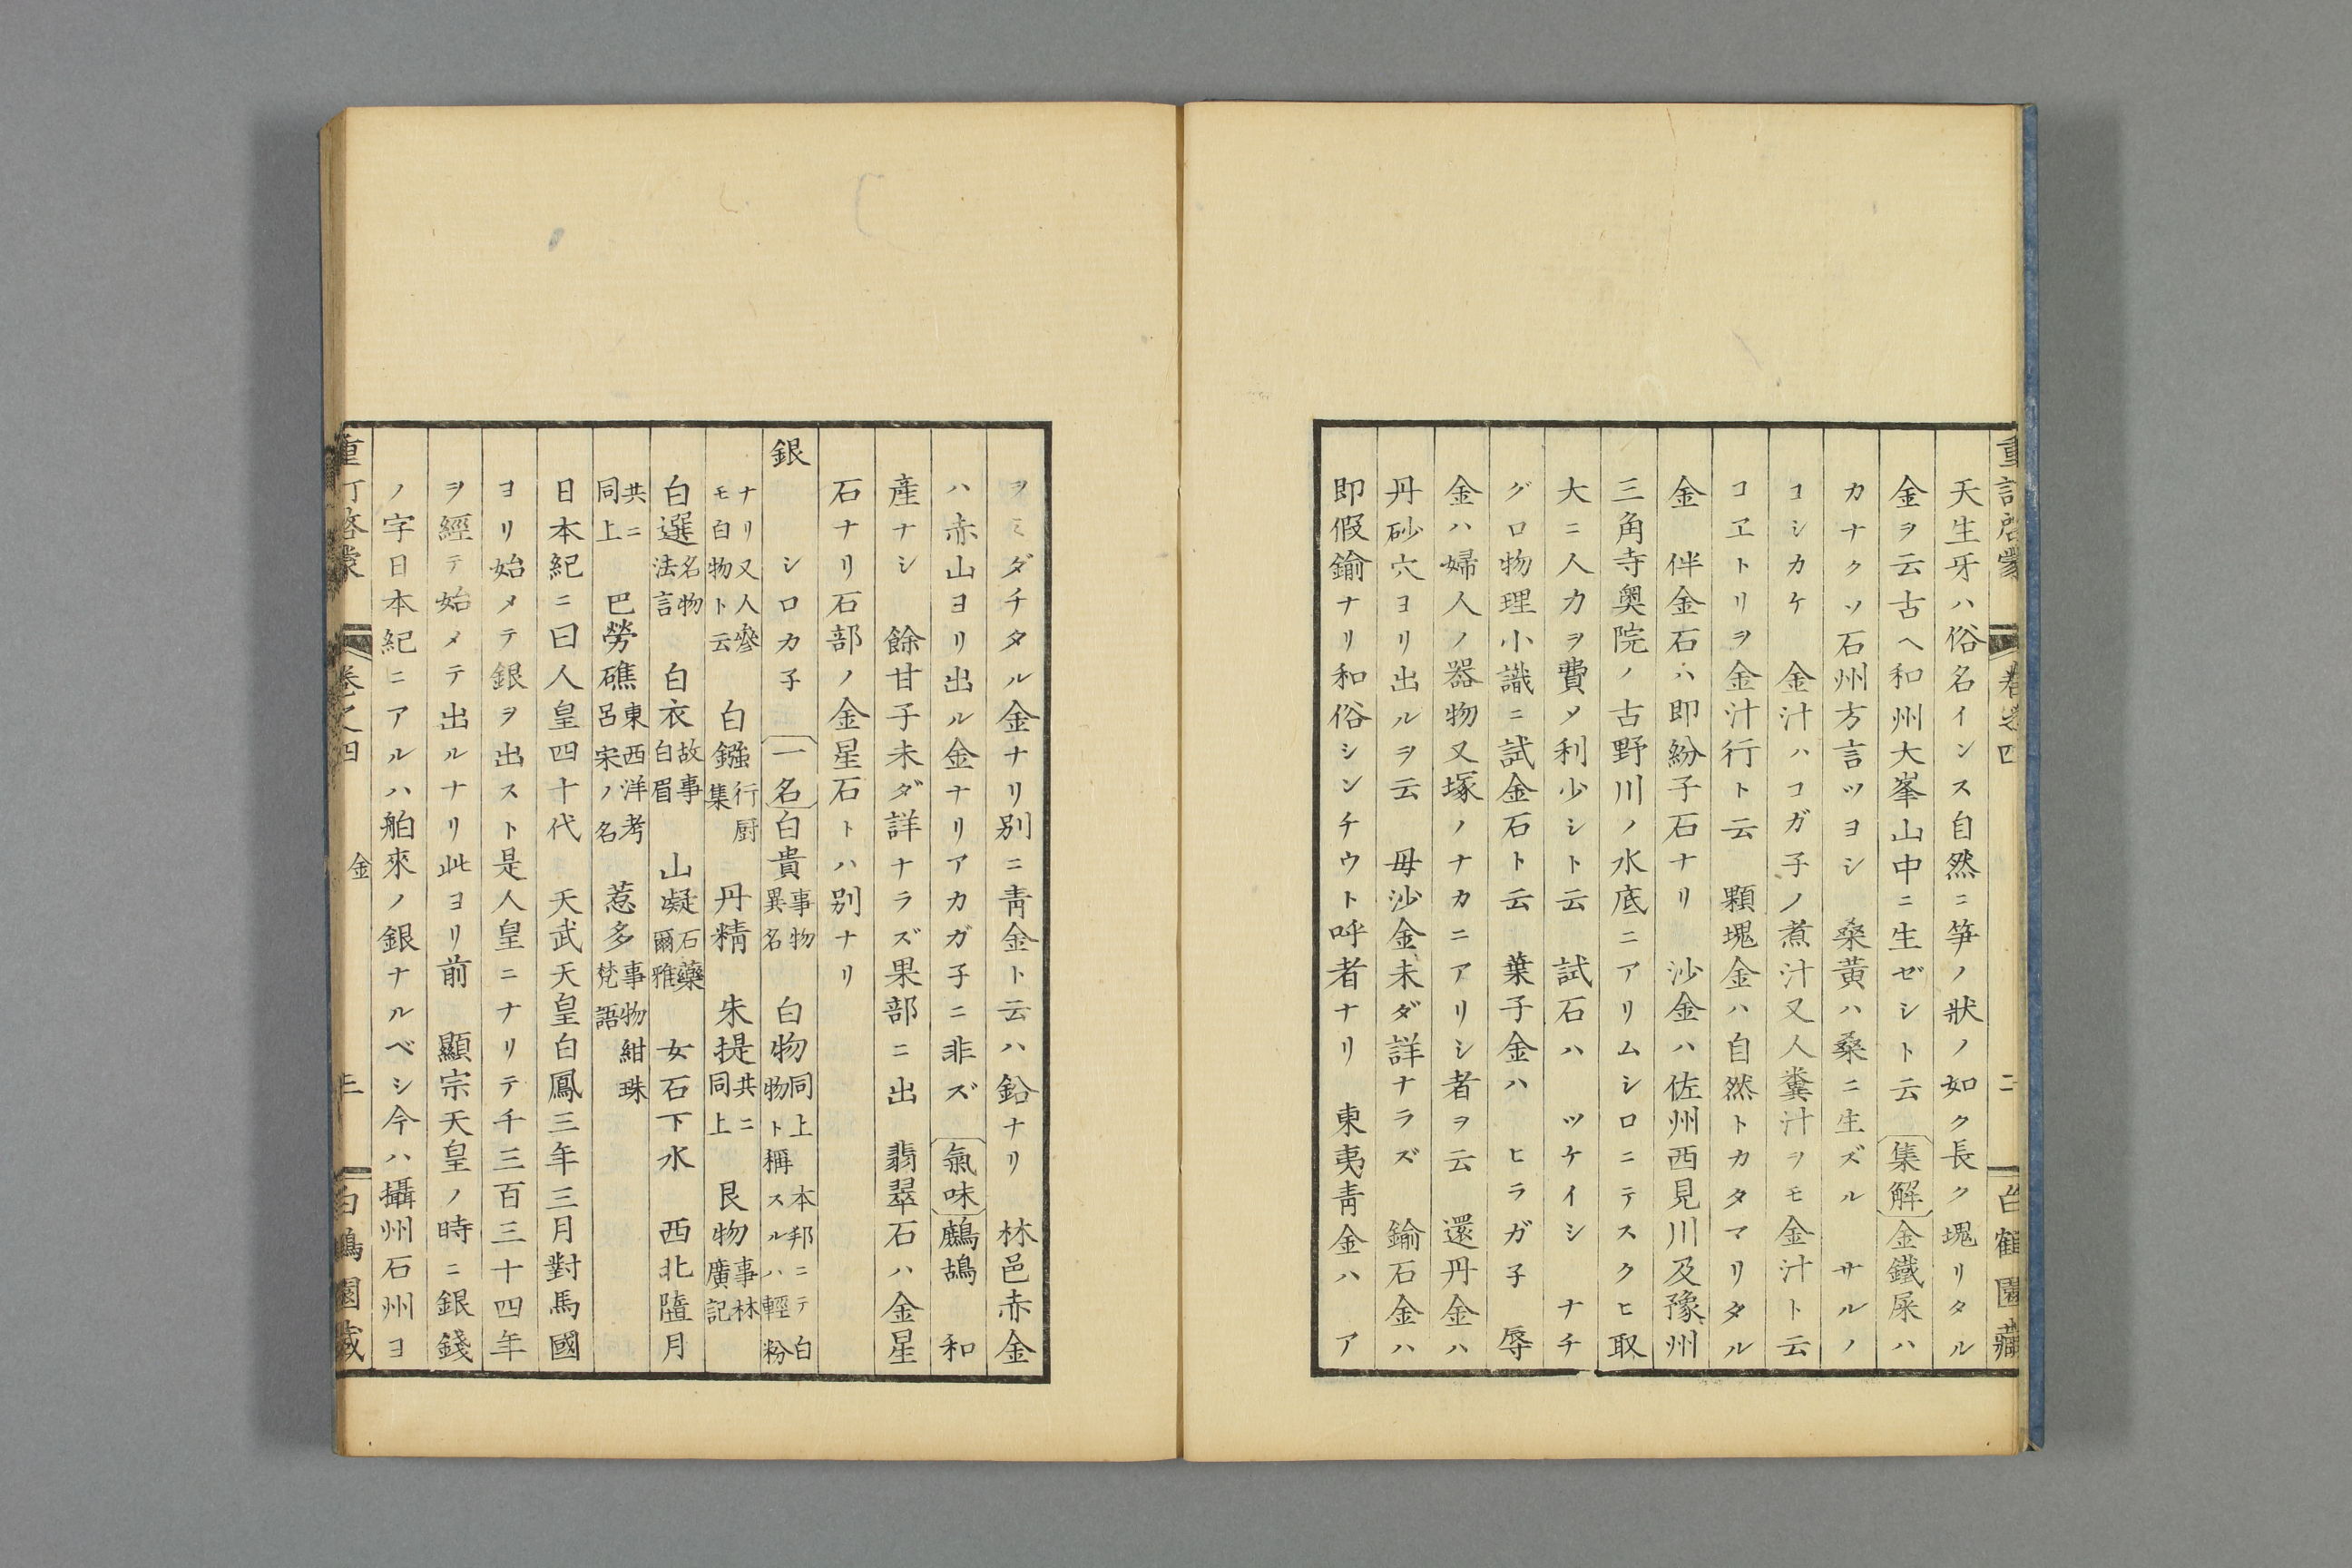 重訂啓蒙 卷之四 二 白鶴園藏
天生牙ハ俗名インス自然ニ笋ノ狀ノ如ク長ク塊リタル
金ヲ云古ヘ和州大峯山中ニ生ゼシト云 集解 金鐵屎ハ
カナクソ石州方言ツヨシ 桑黃ハ桑ニ生ズル サルノ
コシカケ 金汁ハコガ子ノ煮汁又人糞汁ヲモ金汁ト云
コヱトリヲ金汁行ト云 顆塊金ハ自然トカタマリタル
金 伴金石ハ即紛子石ナリ 沙金ハ佐州西見川及豫州
三角寺奥院ノ古野川ノ水底ニアリムシロニテスクヒ取
大ニ人力ヲ費メ利少シト云 試石ハ ツケイシ ナチ
グロ物理小識ニ試金石ト云 葉子金ハ ヒラガ子 辱
金ハ婦人ノ器物又塚ノナカニアリシ者ヲ云 還丹金ハ
丹砂穴ヨリ出ルヲ云 毋沙金未ダ詳ナラズ 鍮石金ハ
即假鍮ナリ和俗シンチウト呼者ナリ 東夷青金ハ ア
ヲミダチタル金ナリ別ニ青金ト云ハ鉛ナリ 林邑赤金
ハ赤山ヨリ出ル金ナリアカガ子ニ非ズ 氣味 鷓鴣 和
產ナシ 餘甘子未ダ詳ナラズ果部ニ出 翡翠石ハ金星
石ナリ石部ノ金星石トハ別ナリ
銀 シロカ子 一名 白貴 事物異名 白物 同上 本邦ニテ白物ト稱スルハ輕粉
ナリ又人參モ白物ト云 白鏹 行厨集 丹精 朱提 共ニ同上 艮物 事林廣記
白選 名物法言 白衣 故事白眉 山凝 石藥爾雅 女石下水 西北墮月
共ニ同上 巴勞礁 東西洋考呂宋ノ名 惹多 事物紺珠梵語
日本紀ニ曰人皇四十代 天武天皇白鳳三年三月對馬國
ヨリ始メテ銀ヲ出スト是人皇ニナリテ千三百三十四年
ヲ經テ始メテ出ルナリ此ヨリ前 顯宗天皇ノ時ニ銀錢
ノ字日本紀ニアルハ舶來ノ銀ナルベシ今ハ攝州石州ヨ
重訂啓蒙 卷之四 金 三 白鶴園藏